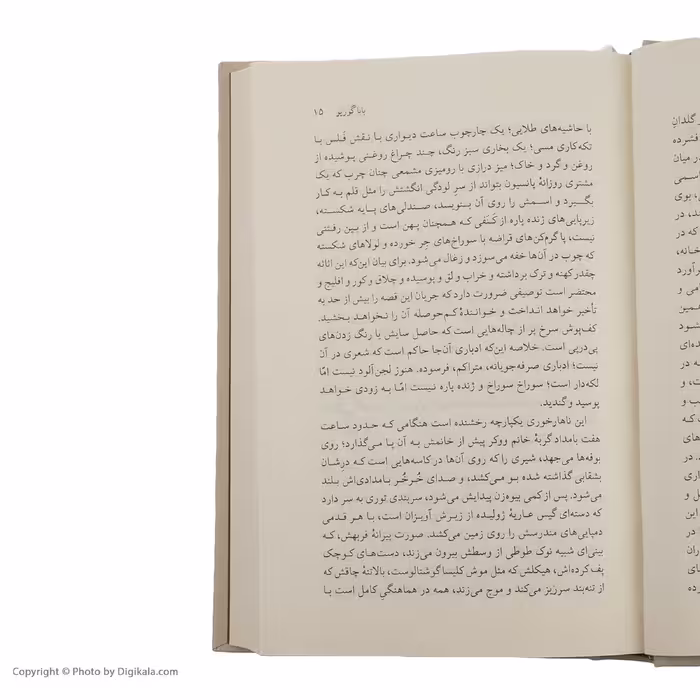 باباگوریو ۱۵
با حاشیه‌های طلایی؛ یک چارچوب ساعت دیواری با نقش فَلس با
تکه‌کاری مسی؛ یک بخاری سبز رنگ، چند چراغ روغنی پوشیده از
روغن و گرد و خاک؛ میز درازی با رومیزی مشمعی چنان چرب که یک
مشتری روزانهٔ پانسیون بتواند از سرِ لودگی انگشتش را مثل قلم به کار
بگیرد و اسمش را روی آن بنویسد، صندلی‌های پایه شکسته،
زیرپایی‌های ژنده پاره از کَنَفی که همچنان پهن است و از بین رفتنی
نیست، پاگرم‌کن‌های قراضه با سوراخ‌های جِر خورده و لولاهای شکسته
که چوب در آن‌ها خفه می‌سوزد و زغال می‌شود. برای بیان این‌که این اثاثه
چقدر کهنه و ترک برداشته و خراب و لق و پوسیده و چلاق و کور و افلیج و
محتضر است توصیفی ضرورت دارد که جریان این قصه را بیش از حد به
تأخیر خواهد انداخت و خوانندهٔ کم‌حوصله آن را نخواهد بخشید.
کف‌پوش سرخ پر از چاله‌هایی است که حاصل سایش یا رنگ زدن‌های
پی‌درپی است. خلاصه این‌که ادباری آن‌جا حاکم است که شعری در آن
نیست؛ ادباری صرفه‌جویانه، متراکم، فرسوده. هنوز لجن‌آلود نیست امّا
لکه‌دار است؛ سوراخ سوراخ و ژنده پاره نیست امّا به زودی خواهد
پوسید و گندید.
این ناهارخوری یکپارچه رخشنده است هنگامی که حدود ساعت
هفت بامداد گربهٔ خانم ووکر پیش از خانمش به آن پا می‌گذارد؛ روی
بوفه‌ها می‌جهد، شیری را که روی آن‌ها در کاسه‌هایی است که درشان
بشقابی گذاشته شده بو می‌کشد، و صدای خُرخُر بامدادی‌اش بلند
می‌شود. پس از کمی بیوه‌زن پیدایش می‌شود، سربندی توری به سر دارد
که دسته‌ای گیس عاریهٔ ژولیده از زیرش آویزان است، با هر قدمی
دمپایی‌های مندرسش را روی زمین می‌کشد. صورت پیرانهٔ فربهش، که
بینی‌ای شبیه نوک طوطی از وسطش بیرون می‌زند، دست‌های کوچک
پف‌کرده‌اش، هیکلش که مثل موش کلیسا گوشتالوست، بالاتنهٔ چاقش که
از تنه‌بند سرریز می‌کند و موج می‌زند، همه در هماهنگیِ کامل است با
Copyright © Photo by Digikala.com